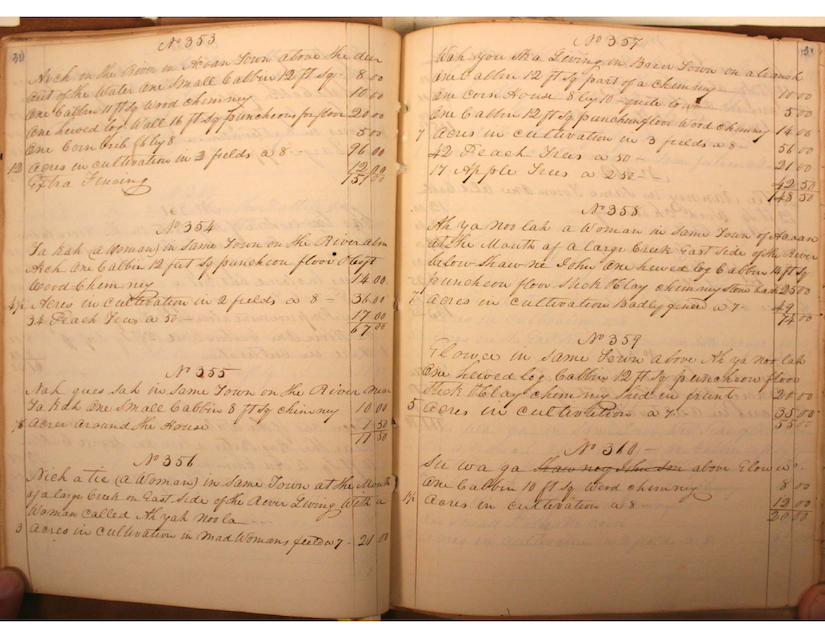 No 353
Arch on the River in Aovan Town above the deer
out of the Water one Small Cabbin 12 ft Sq 8 00
One Cabbin 11 ft Sq Wood chimney 10 00
One hewed log Wall 16 ft Sq puncheons for floor 20 00
One Corn Crib 6 by 8 5 00
12 Acres in cultivation in 2 fields a 8 - 96 00
Extra Fencing 12 00
151 00
No 354
Ta kah (a Woman) in Same Town on the River above
Arch one Cabbin 12 feet Sq puncheon floor
Wood Chimney 14 00
4½ Acres in cultivation in 2 fields a 8 - 36 00
34 Peach Trees a 50 - 17 00
67 00
No 355
Nah ques sah in Same Town on the River near
Ta kah one Small Cabbin 8 ft Sq chimney 10 00
Acres around the House 1 50
11 50
No 356
Nich a tie (a Woman) in Same Town at the Mouth
of a large Creek on East Side of the River Living With a
Woman called Ah yah noo la
3 Acres in Cultivation in Mad Womans field a 7 - 21 00
No 357
Wah you ska Living in Town on a branch
One Cabbin 12 ft Sq part of a chimney 10 00
One Corn House 8 by 10 - quite low 5 00
One Cabbin 12 ft Sq puncheon floor Wood Chimney 14 00
7 Acres in cultivation in 3 fields a 8 - 56 00
42 Peach Trees a 50 - 21 00
17 Apple Trees a 250 - 42 50
148 50
No 358
Ah ya noo lah a Woman in Same Town of Aovan
at the Mouth of a large Creek East Side of the River
below Shaw ne John one hewed log Cabbin 14 ft Sq
puncheon floor Stick & Clay chimney Stone back 25 00
7 Acres in cultivation Badly fenced a 7 49
74 00
No 359
Glower in Same Town above Ah ya noo lah
One hewed Log Cabbin 12 ft Sq puncheon floor
Stick & Clay chimney Shed in front 20 00
5 Acres in Cultivation a 7 - 35 00
55 00
No 360 -
Su wa ga above Glower
One Cabbin 10 ft Sq Wood chimney 8 00
1½ Acres in cultivation a 8 12 00
20 00